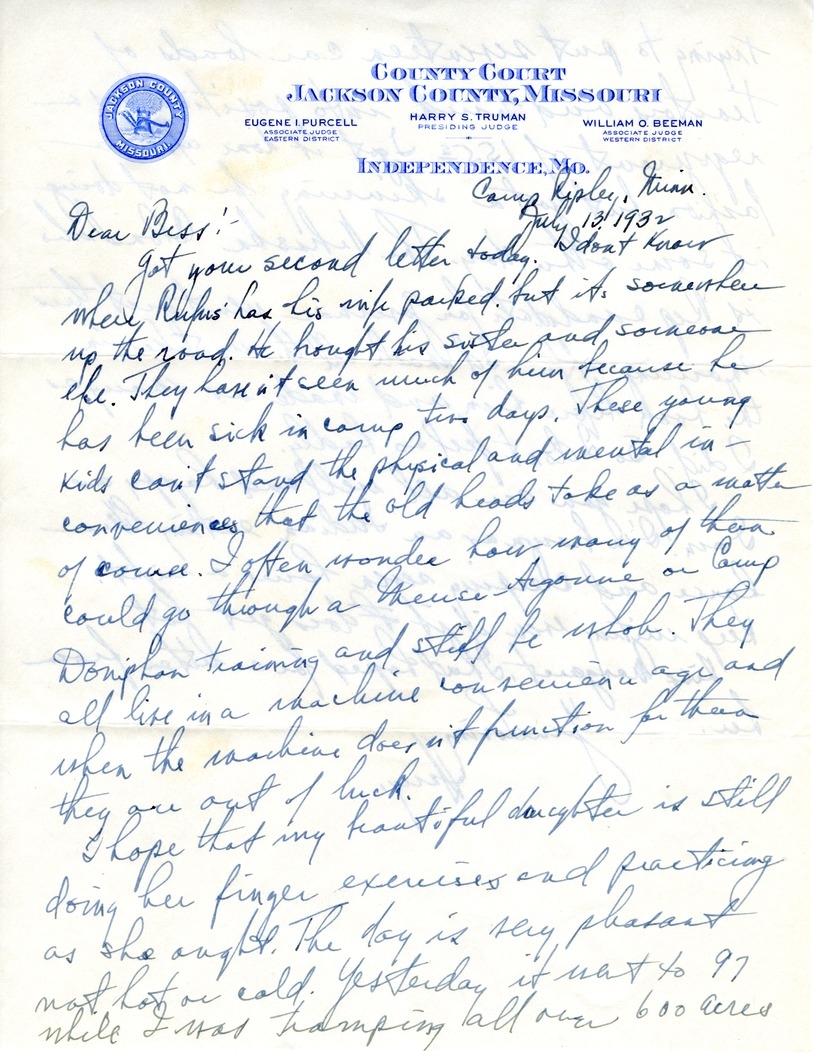 COUNTY COURT
JACKSON COUNTY, MISSOURI
JACKSON COUNTY
MISSOURI
EUGENE I. PURCELL
ASSOCIATE JUDGE
EASTERN DISTRICT
HARRY S. TRUMAN
PRESIDING JUDGE
WILLIAM O. BEEMAN
ASSOCIATE JUDGE
WESTERN DISTRICT
INDEPENDENCE, MO.
Camp Ripley, Minn.
July 13, 1932
Dear Bess:-
Got your second letter today. I don't know
where Rufus' has his wife parked. but its somewhere
up the road. He brought his sister and someone
else. They haven't seen much of him because he
has been sick in camp two days. These young
kids can't stand the physical and mental in-
conveniences that the old heads take as a matter
of course. I often wonder how many of them
could go through a Meuse-Argonne or Camp
Doniphan training and still be whole. They
all live in a machine convenience age and
when the machine doesn't function for them
they are out of luck.
I hope that my beautiful daughter is still
doing her finger exercises and practicing
as she ought. The day is very pleasant
not hot or cold. Yesterday it went to 97
while I was tramping all over 600 acres